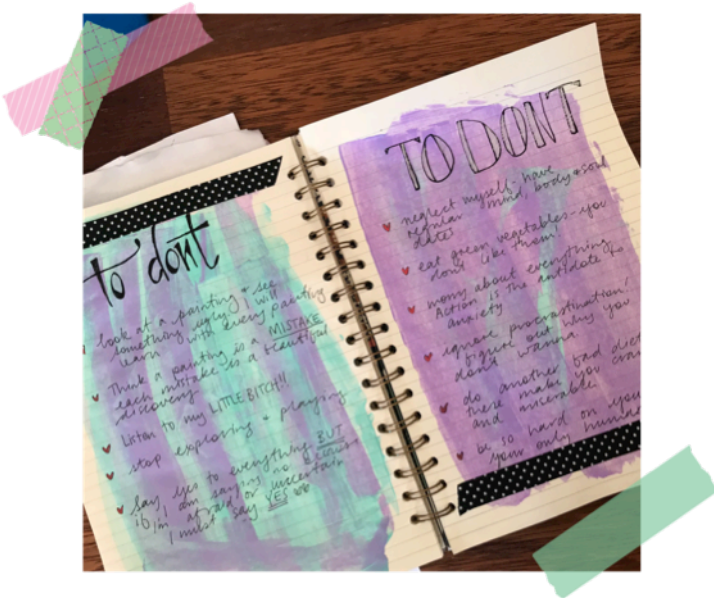 to dont
look at a painting + see
something ugly, I will
learn with every painting
Think a painting is a MISTAKE
each mistake is a beautiful
discovery
Listen to my LITTLE BITCH!!!
stop exploring + playing
Say yes to everything BUT
if I am saying no because
im afraid or uncertain
I must say YES
TO DONT
neglect myself-have
regular mind, body + soul
dates
eat green vegetables-you
dont like them!
worry about everything
Action is the antidote to
anxiety
ignore procrastination!
figure out why you
dont wanna
do another fad diet
these make you
and miserable!
be so hard on you
your only human